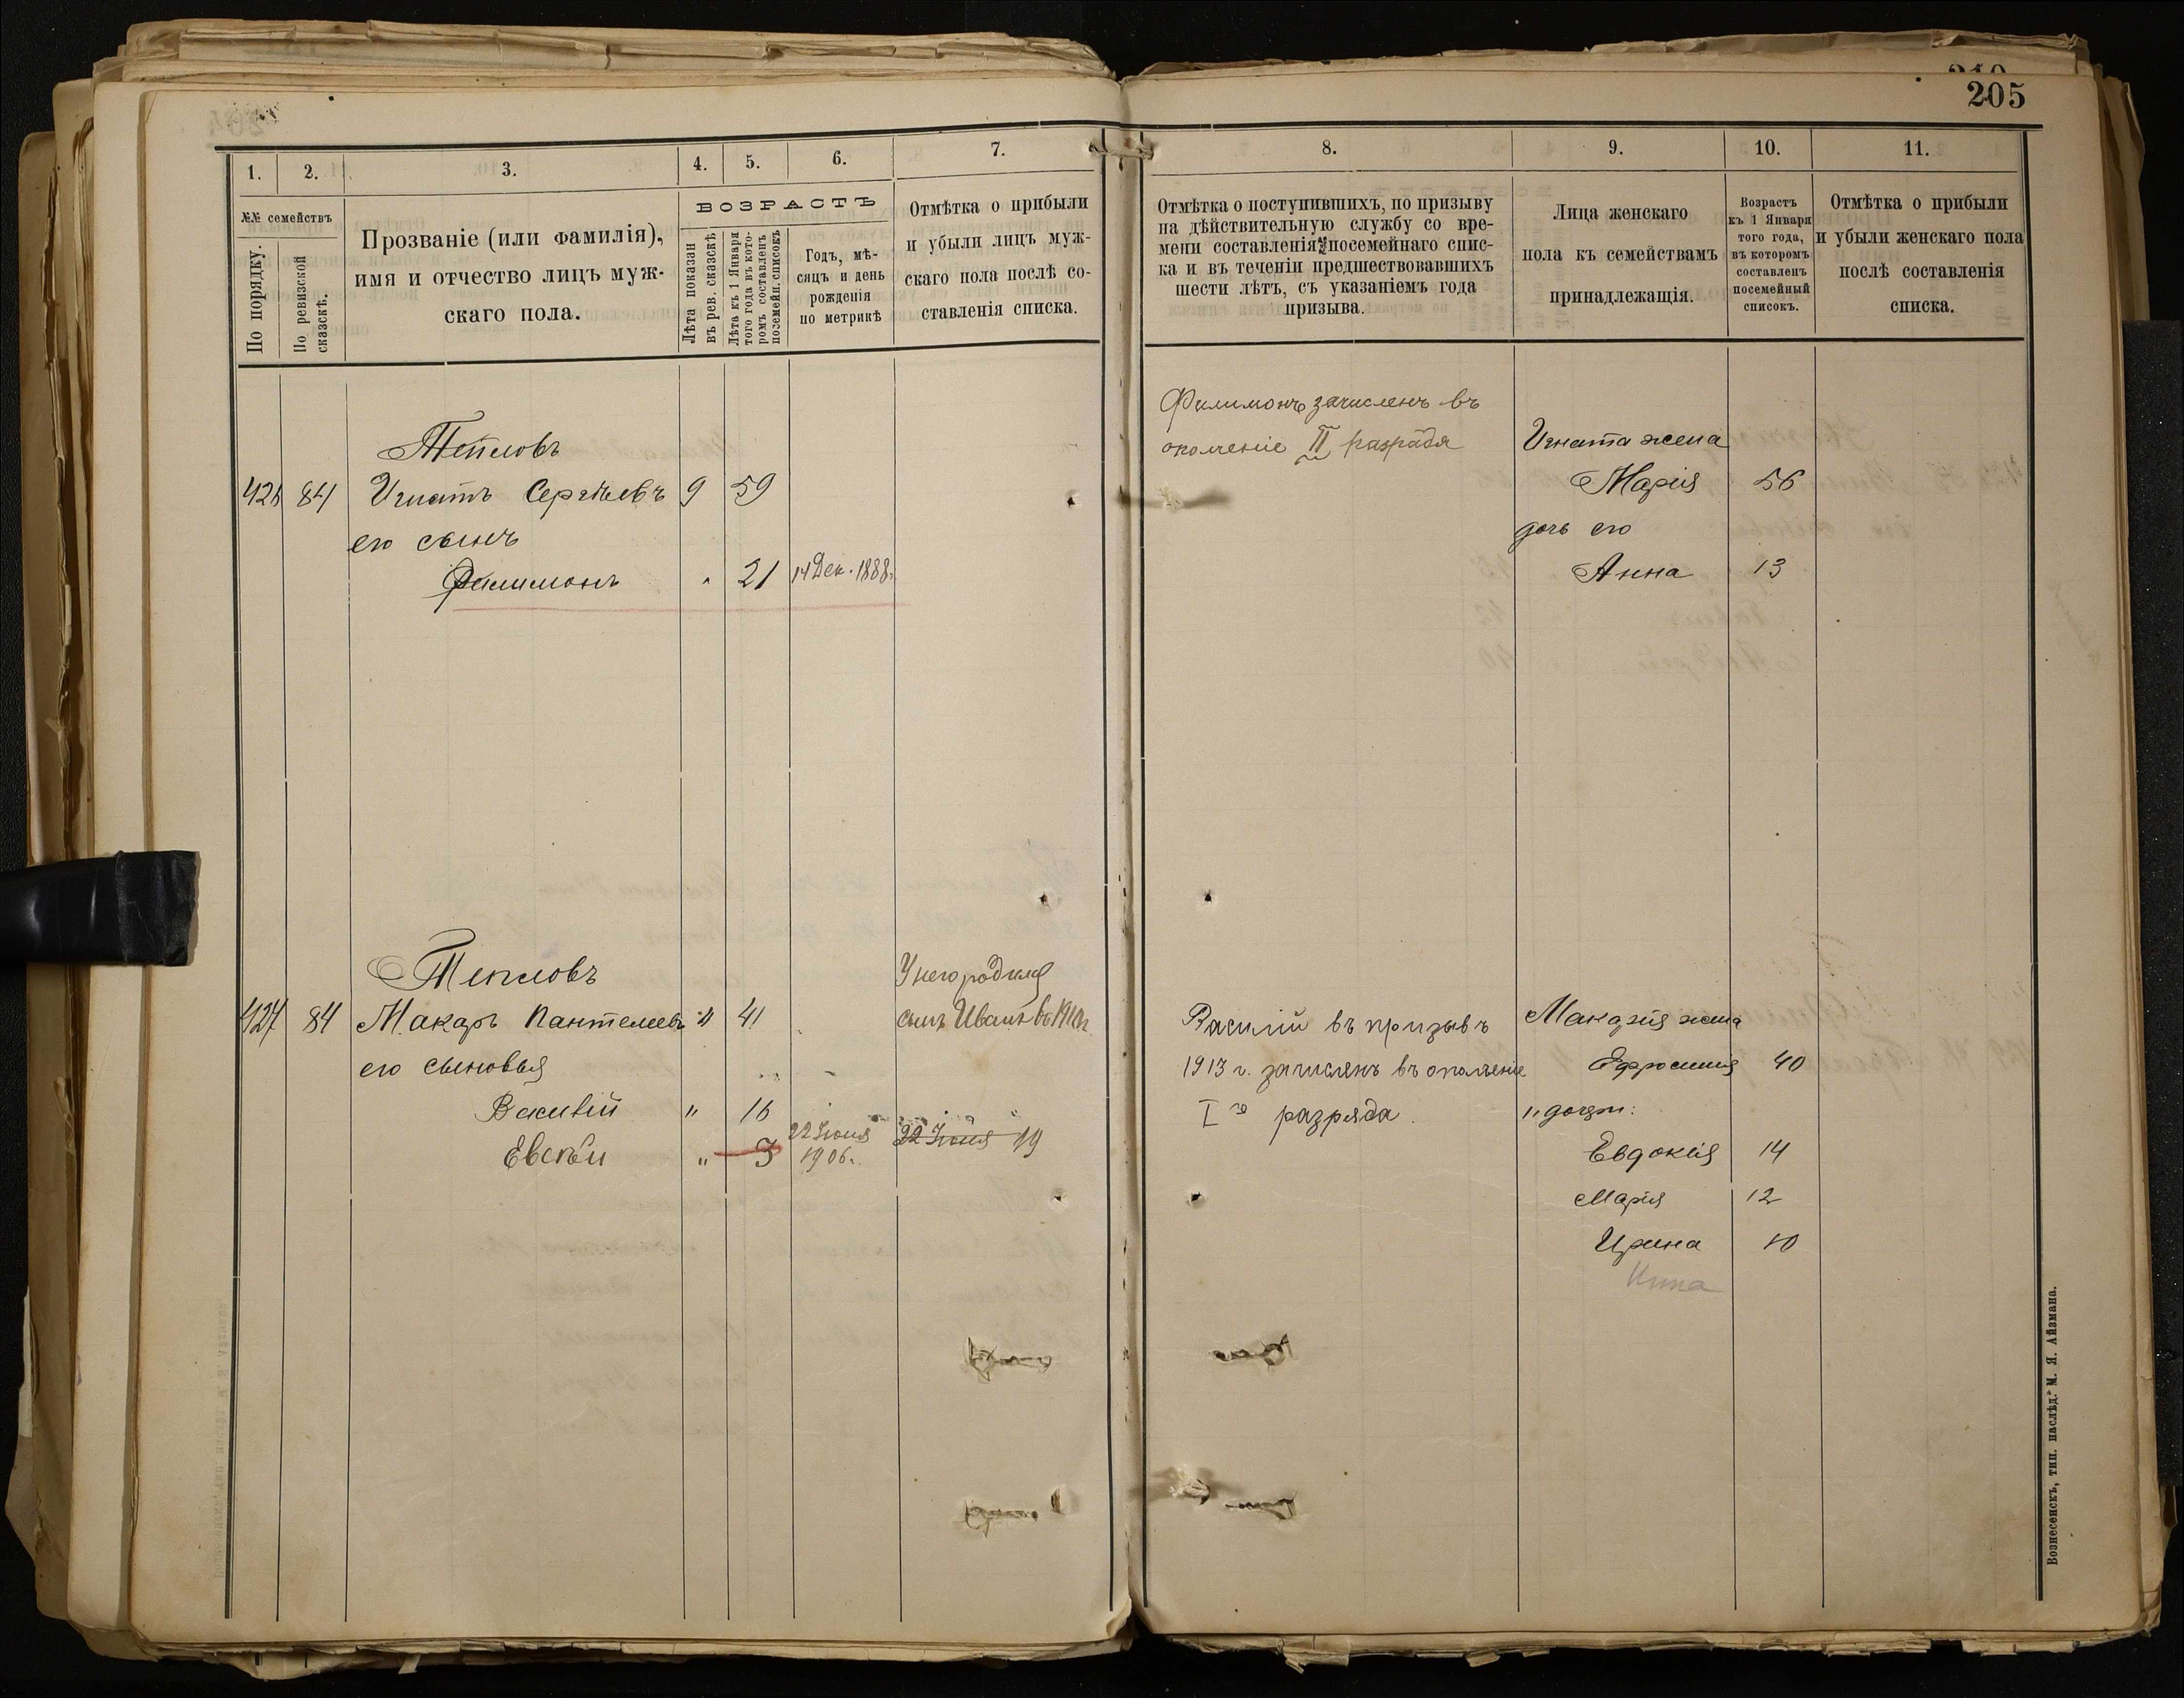 205
1.
2.
3.
4.
5.
6.
7.
№№ семействъ
По порядку.
По ревизской сказскѣ.
Прозваніе (или фамилія),
имя и отчество лицъ муж-
скаго пола.
ВОЗРАСТЪ
Лѣта показан
въ рев. сказскѣ
Лѣта къ 1 Января
того года въ кото-
ромъ составленъ
посемейн. списокъ
Годъ, мѣ-
сяцъ и день
рожденія
по метрикѣ
Отмѣтка о прибыли
и убыли лицъ муж-
скаго пола послѣ со-
ставленія списка.
Тепловъ
426 84 Игнатъ Сергѣевъ 9 59
его сынъ
Филимонъ " 21 14 Дек. 1888.
Тепловъ
427 84 Макаръ Пантелеевъ " 41
его сыновья
Василій " 16
Евсѣй " 3 22 Іюня 1906г.
У него родился
сынъ Иванъ въ
22 Іюня 19
8.
9.
10.
11.
Отмѣтка о поступившихъ, по призыву
на дѣйствительную службу со вре-
мени составленія посемейнаго спис-
ка и въ теченіи предшествовавшихъ
шести лѣтъ, съ указаніемъ года
призыва.
Лица женскаго
пола къ семействамъ
принадлежащія.
Возрастъ
къ 1 Января
того года,
въ которомъ
составленъ
посемейный
списокъ.
Отмѣтка о прибыли
и убыли женскаго пола
послѣ составленія
списка.
Филимонъ зачисленъ въ
ополченіе II разряда
Игната жена
Марія 56
дочь его
Анна 13
Василій въ призывъ
1913 г. зачисленъ въ ополченіе
I го разряда.
Макарія жена
Ефросинія 40
" дочери:
Евдокія 14
Марія 12
Ирина 10
Вознесенскъ, тип. наслѣд. М. Я. Айзмана.